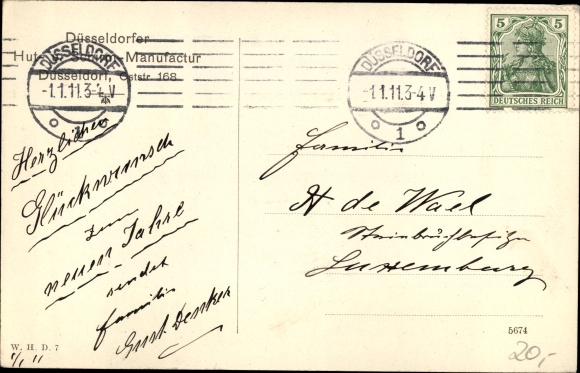 Düsseldorfer
Hut Manufactur
Düsseldorf, Oststr. 168.
DÜSSELDORF
-1.1.11.3-4 V
1
DÜSSELDORF
-1.1.11.3-4 V
1
5 5
DEUTSCHES REICH
Herzlichen
Glückwunsch
zum
neuen Jahre
sendet
Familie
Gust Denker
Familie
A de Wael
Steinbruchbesitzer
Luxemburg
W. H. D. 7
1/1 11
5674
20,-